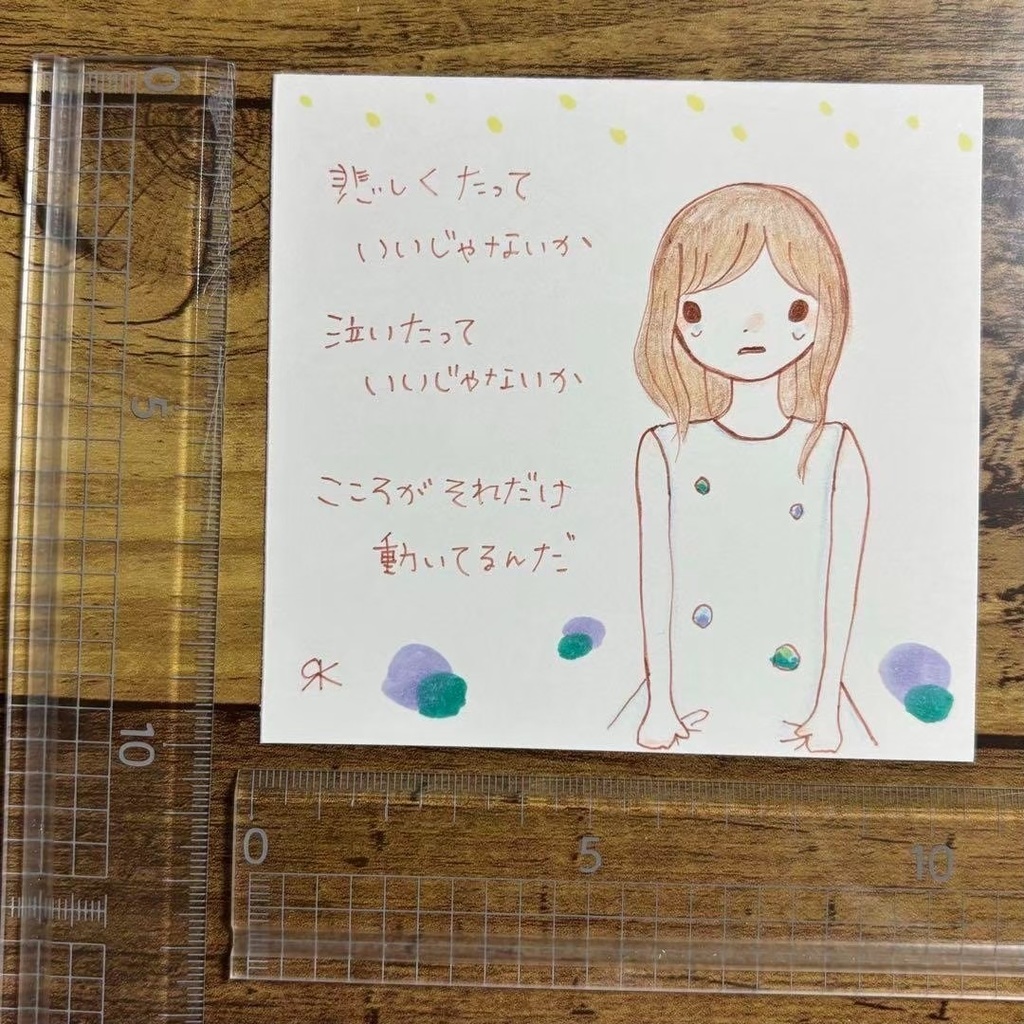 悲しくたって
いいじゃないか
泣いたって
いいじゃないか
こころがそれだけ
動いてるんだ
0
5
10
0
5
10